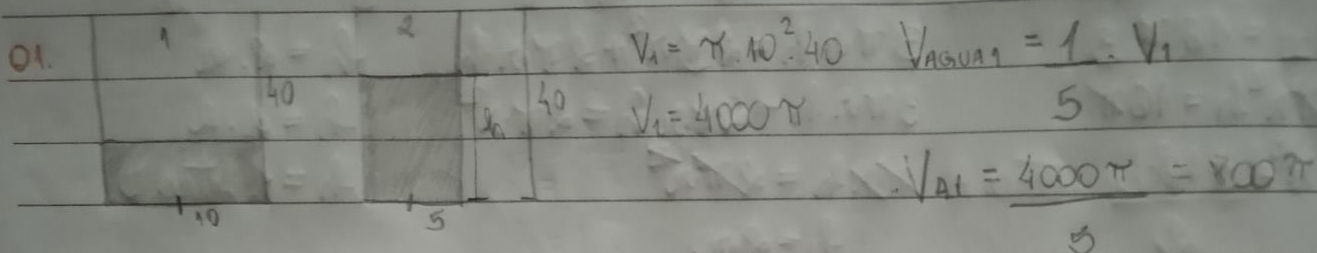 01.
1
2
40
10
h
40
5
V₁ = π.10².40
V₁ = 4000π
VAGUA1 = 1/5 . V₁
VA1 = 4000π/5 = 800π